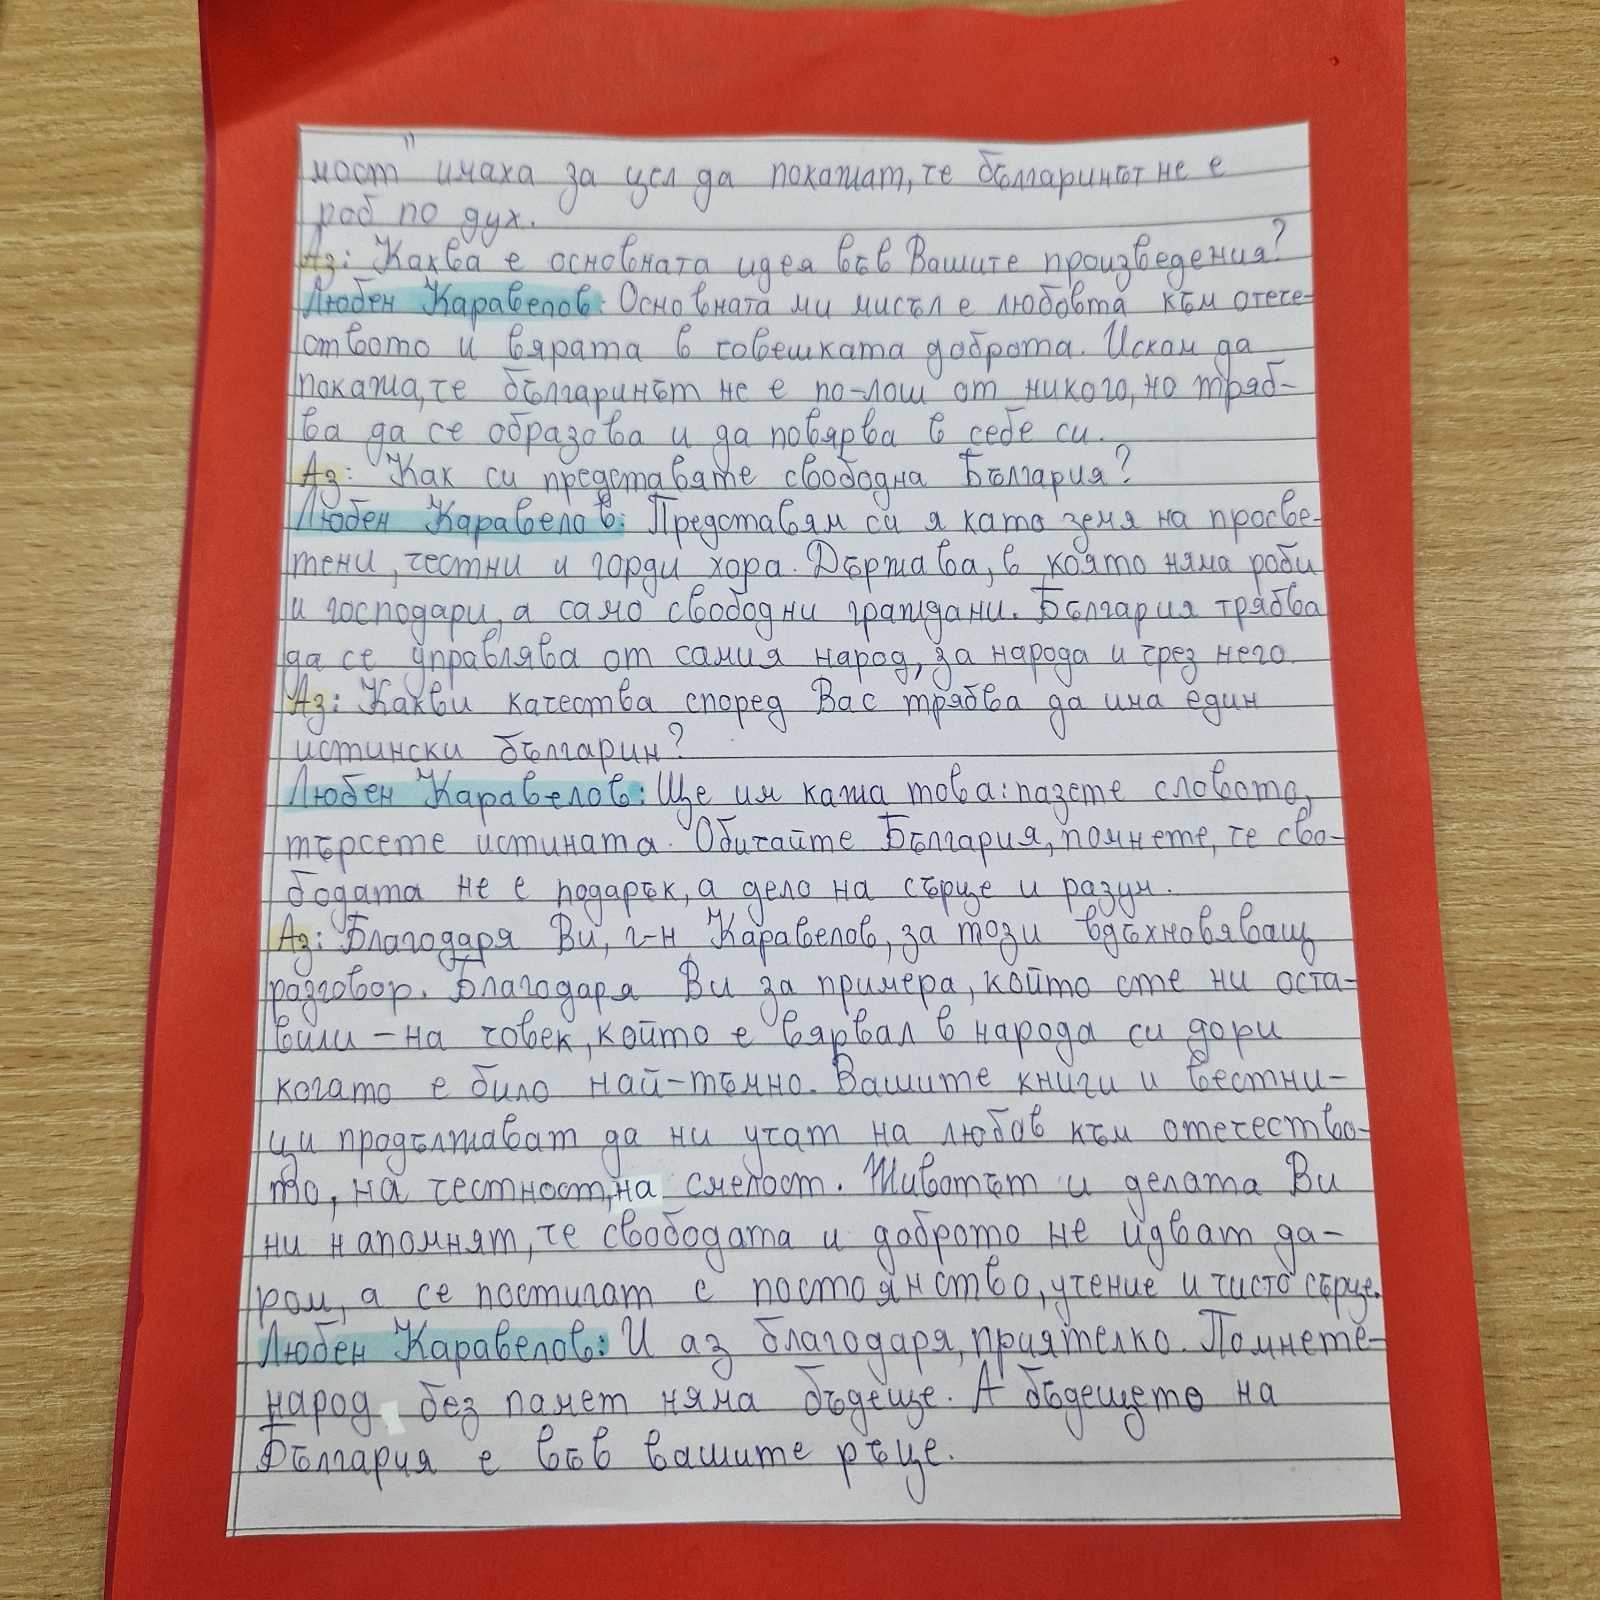 мост" имаха за цел да покажат, че българинът не е
роб по дух.
Аз: Каква е основната идея във Вашите произведения?
Любен Каравелов: Основната ми мисъл е любовта към отече-
ството и вярата в човешката доброта. Искам да
покажа, че българинът не е по-лош от никого, но тряб-
ва да се образова и да повярва в себе си.
Аз: Как си представяте свободна България?
Любен Каравелов: Представям си я като земя на просве-
тени, честни и горди хора. Държава, в която няма роби
и господари, а само свободни граждани. България трябва
да се управлява от самия народ, за народа и чрез него.
Аз: Какви качества според Вас трябва да има един
истински българин?
Любен Каравелов: Ще им кажа това: пазете словото,
търсете истината. Обичайте България, помнете, че сво-
бодата не е подарък, а дело на сърце и разум.
Аз: Благодаря Ви, г-н Каравелов, за този вдъхновяващ
разговор. Благодаря Ви за примера, който сте ни оста-
вили – на човек, който е вярвал в народа си дори
когато е било най-тъмно. Вашите книги и вестни-
ци продължават да ни учат на любов към отечество-
то, на честност, на смелост. Животът и делата Ви
ни напомнят, че свободата и доброто не идват да-
ром, а се постигат с постоянство, учение и чисто сърце.
Любен Каравелов: И аз благодаря, приятелко. Помнете-
народ без памет няма бъдеще. А бъдещето на
България е във вашите ръце.